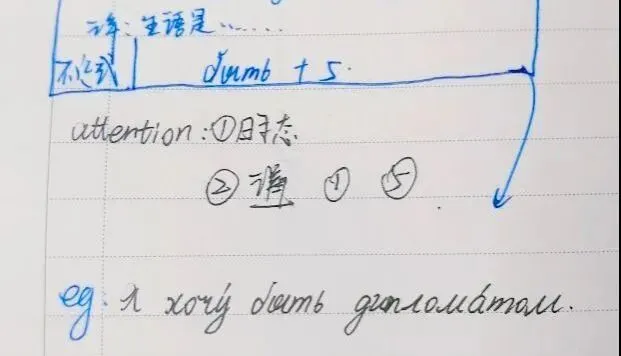 译: 主语是......
不定式 быть + 5.
attention: ①时态
② ① ⑤
eg: Я хочу́ быть диплома́том.